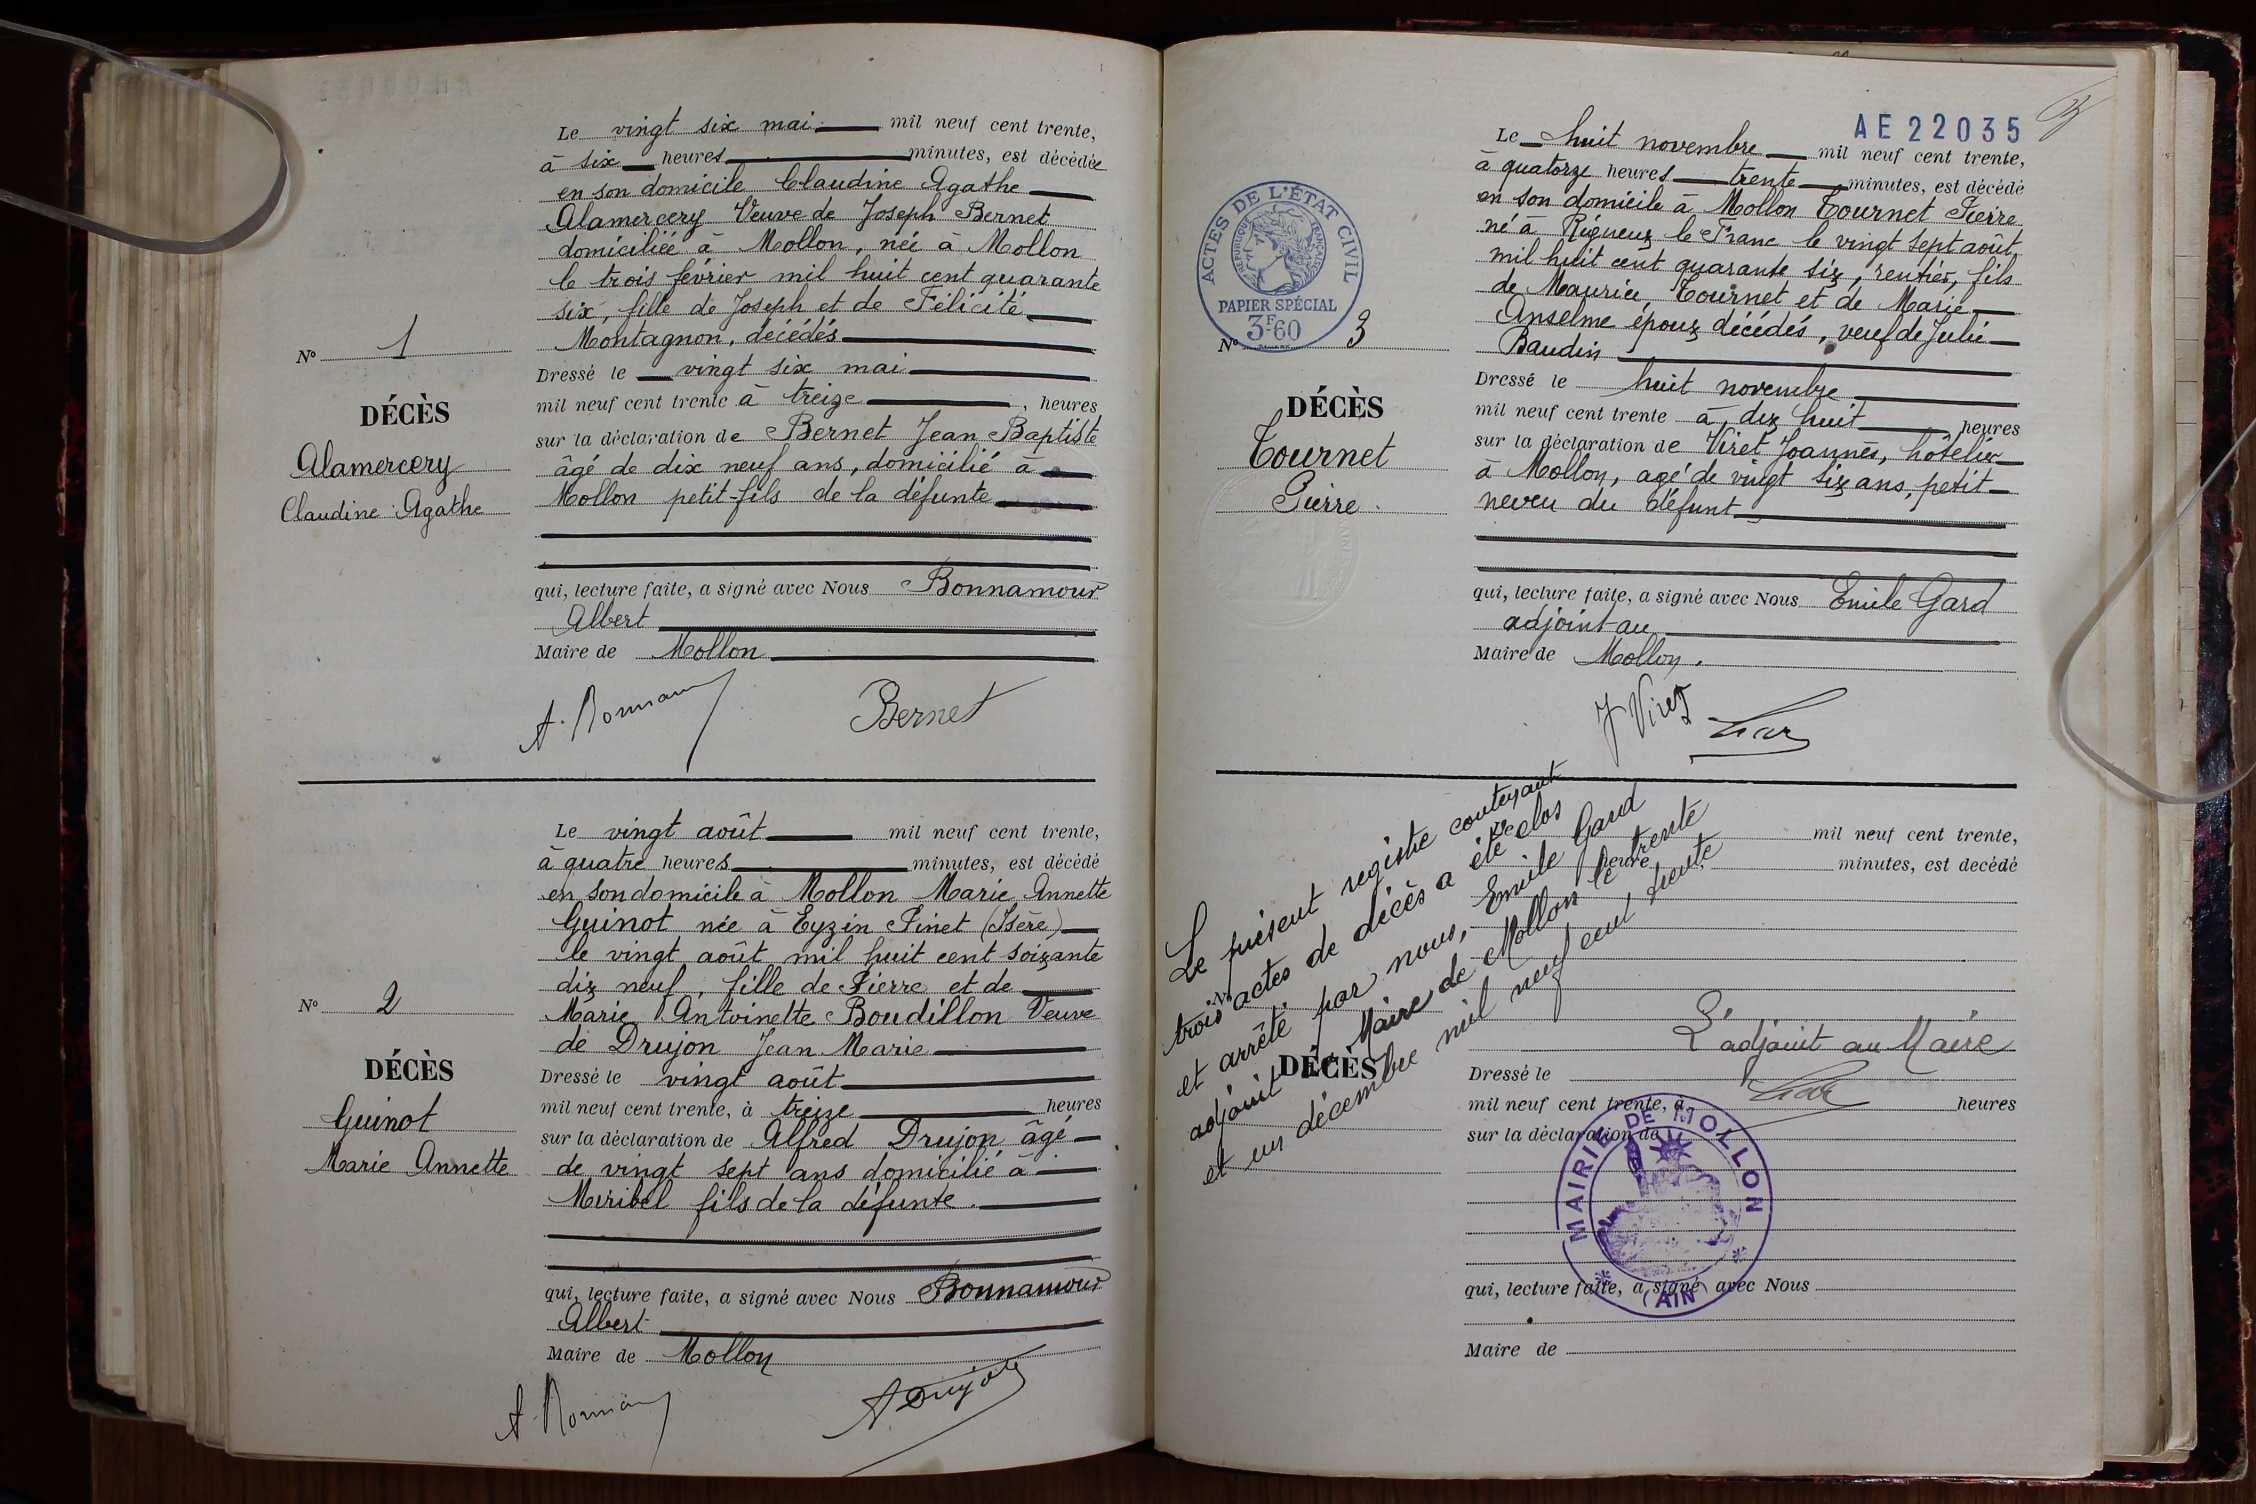 Le vingt six mai mil neuf cent trente,
à six heures minutes, est décédée
en son domicile Claudine Agathe
Alamercery Veuve de Joseph Bernet
domiciliée à Mollon, née à Mollon
le trois février mil huit cent quarante
six, fille de Joseph et de Félicité
Montagnon, décédés
N° 1
Dressé le vingt six mai
mil neuf cent trente à treize, heures
DÉCÈS
sur la déclaration de Bernet Jean Baptiste
Alamercery
âgé de dix neuf ans, domicilié à
Claudine Agathe
Mollon petit-fils de la défunte
qui, lecture faite, a signé avec Nous Bonnamour
Albert
Maire de Mollon
Bernet
Le vingt août mil neuf cent trente,
à quatre heures minutes, est décédé
en son domicile à Mollon Marie Annette
Guinot née à Eyzin Pinet (Isère)
le vingt août mil huit cent soixante
dix neuf, fille de Pierre et de
N° 2
Marie Antoinette Boudillon Veuve
de Drujon Jean Marie
DÉCÈS
Dressé le vingt août
mil neuf cent trente, à treize heures
Guinot
sur la déclaration de Alfred Drujon âgé
Marie Annette
de vingt sept ans domicilié à
Miribel fils de la défunte.
qui, lecture faite, a signé avec Nous Bonnamour
Albert
Maire de Mollon
A Drujon
AE22035
Le huit novembre mil neuf cent trente,
à quatorze heures trente minutes, est décédé
en son domicile à Mollon Tournet Pierre
né à Rigneux le Franc le vingt sept août
mil huit cent quarante six, rentier, fils
de Maurice Tournet et de Marie
Anselme époux décédés, veuf de Julie
Baudin
ACTES DE L'ÉTAT CIVIL
RÉPUBLIQUE FRANÇAISE
PAPIER SPÉCIAL
3F60
N° 3
Dressé le huit novembre
DÉCÈS
mil neuf cent trente à dix huit heures
Tournet
sur la déclaration de Viret Joannès, hôtelier
à Mollon, agé de vingt six ans, petit-
Pierre.
neveu du défunt
qui, lecture faite, a signé avec Nous Emile Gard
adjoint au
Maire de Mollon.
J Viret
Le présent registre contenant
trois actes de décès a été clos
et arrêté par nous, Emile Gard
adjoint au Maire de Mollon le trente
et un décembre mil neuf cent trente
mil neuf cent trente,
heure minutes, est decédé
N°
L'adjoint au Maire
DÉCÈS
Dressé le
mil neuf cent trente, à heures
sur la déclaration de
MAIRIE DE MOLLON
(AIN)
qui, lecture faite, a signé avec Nous
Maire de